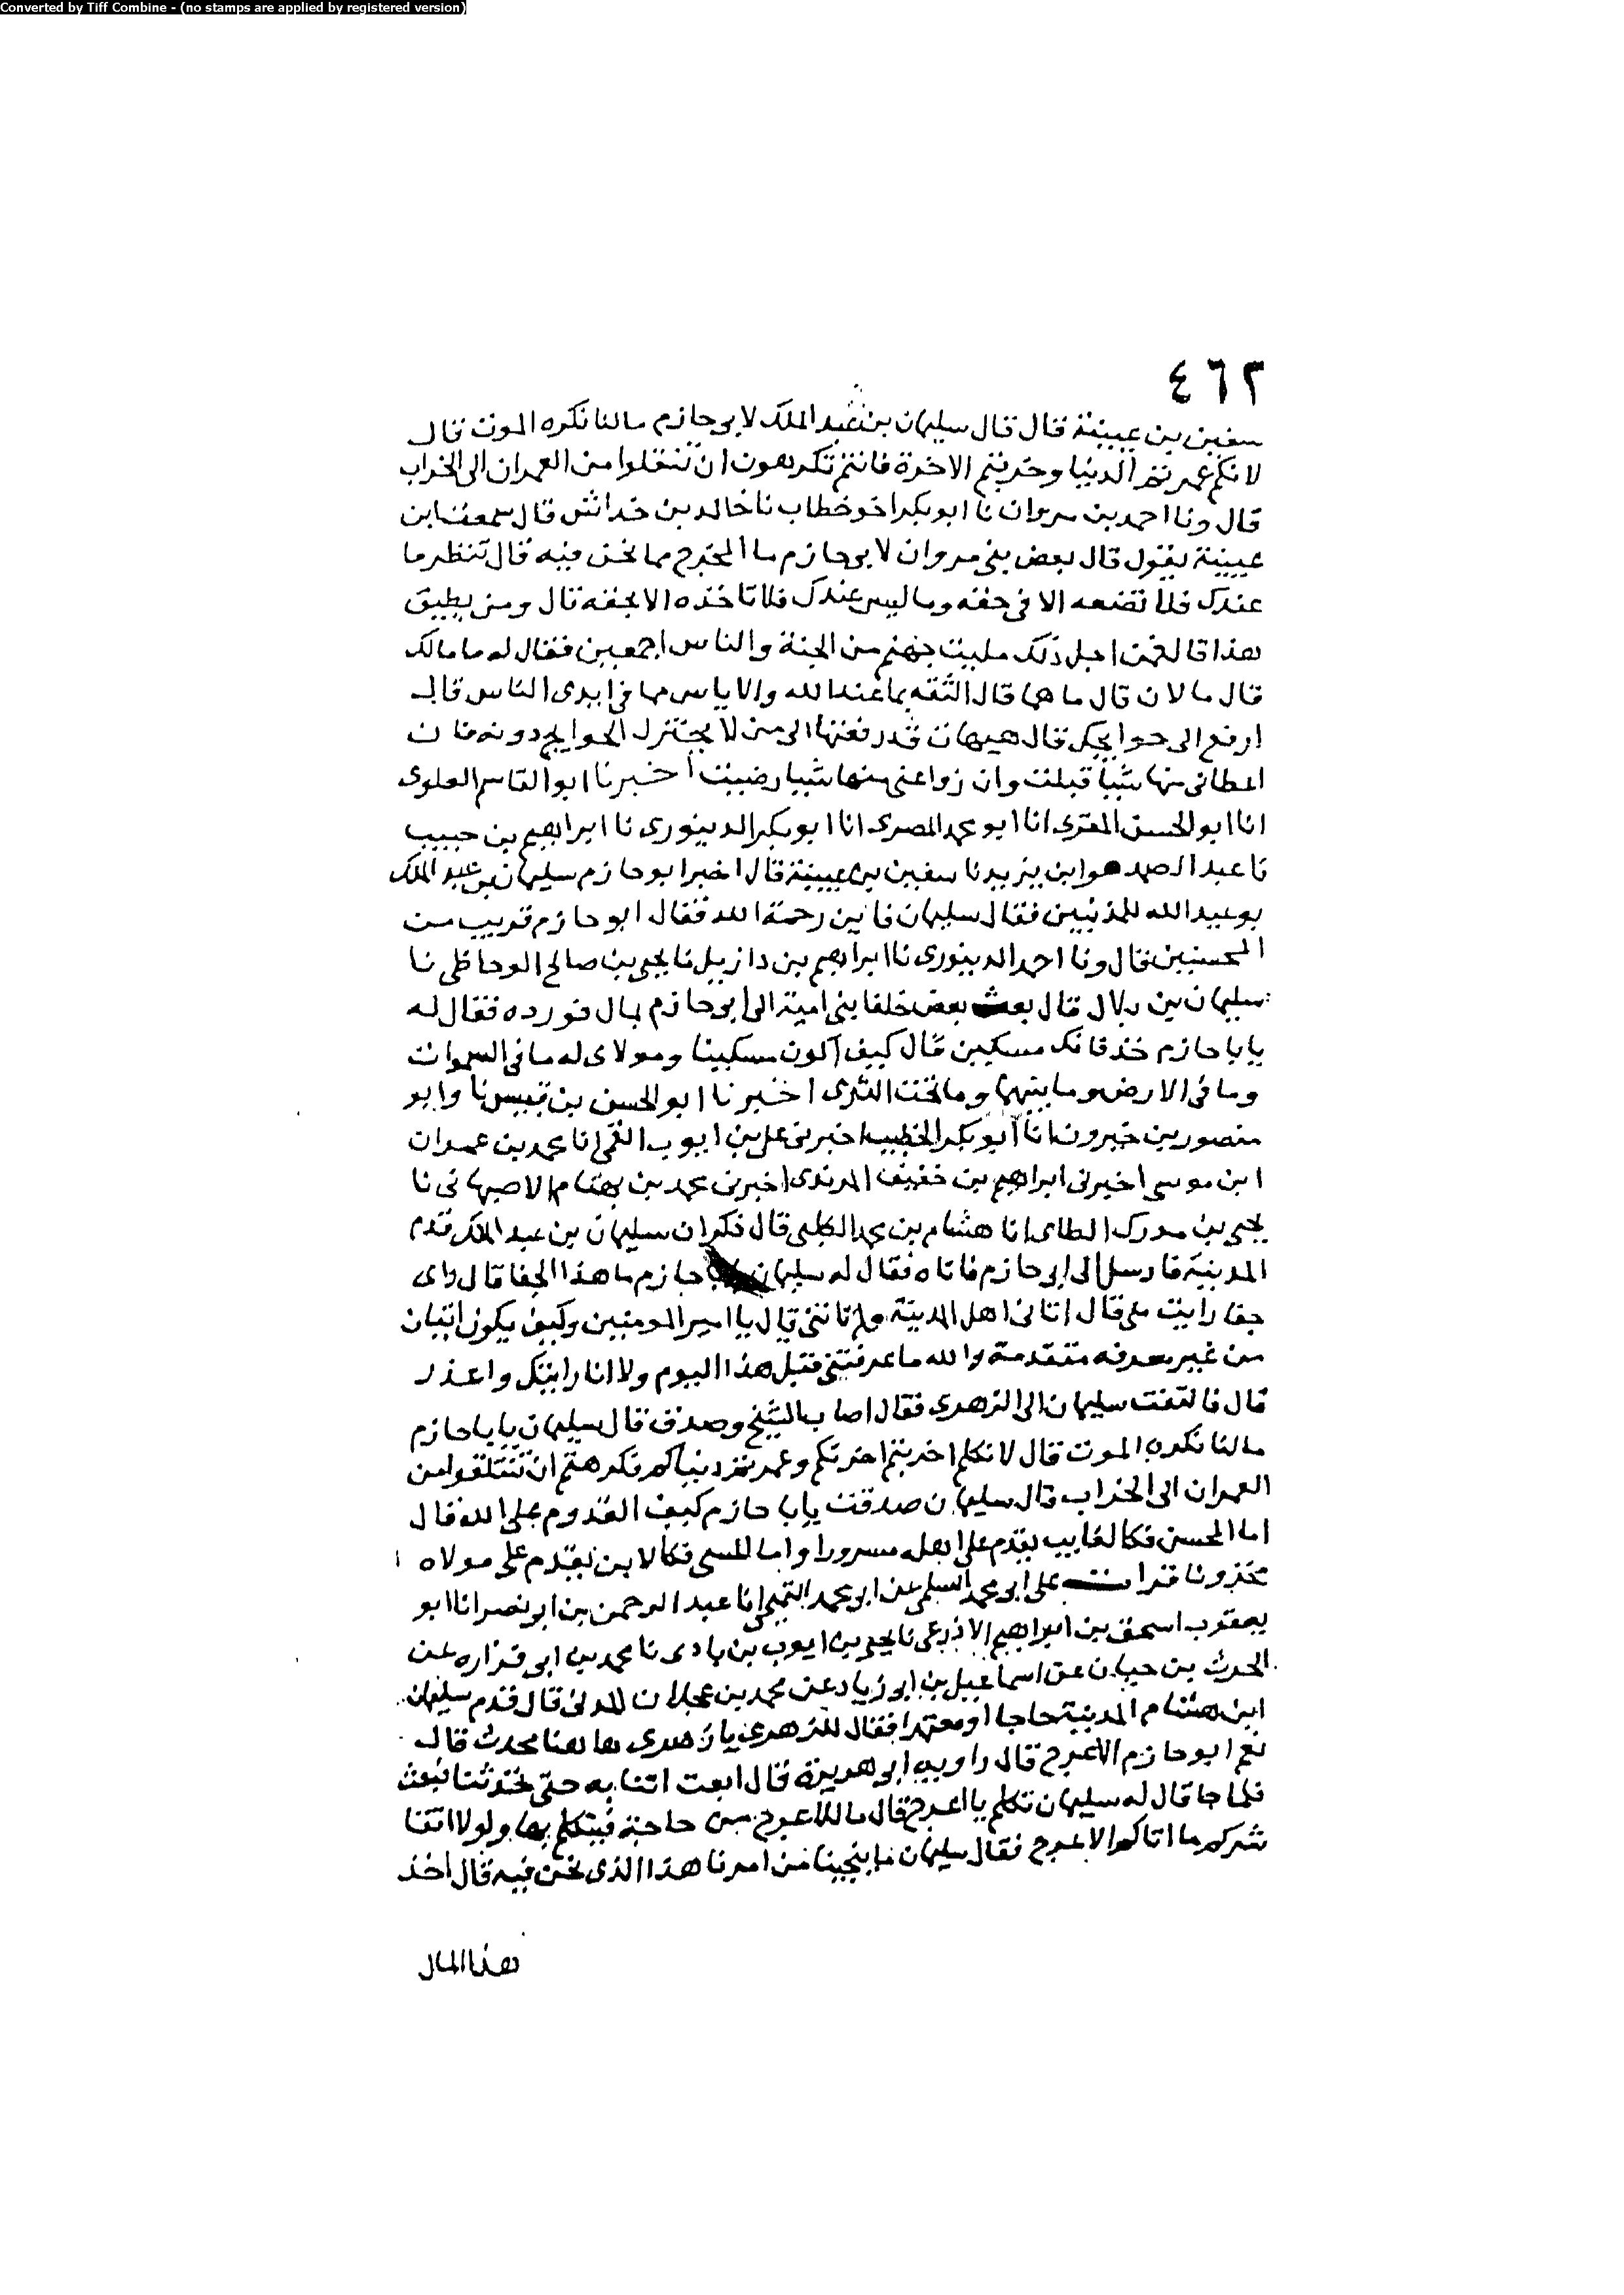 Converted by Tiff Combine - (no stamps are applied by registered version)
٤٦٢
سفين بن عيينة قال قال سليمان بن عبد الملك لابى حازم مالنا نكره الموت قال
لانكم عمرتم الدنيا وخربتم الاخرة فانتم تكرهون ان تنقلوا من العمران الى الخراب
قال ونا احمد بن مروان نا ابو بكر اخو خطاب نا خالد بن خداش قال سمعت ابن
عيينة يقول قال بعض بنى مروان لابى حازم ما المخرج مما نحن فيه قال تنظر ما
عندك فلا تضعه الا فى حقه وما ليس عندك فلا تاخذه الا بحقه قال ومن يطيق
هذا قال فمن اجل ذلك مليت جهنم من الجنة والناس اجمعين فقال له ما مالك
قال مالان قال ما هما قال الثقه بما عند الله والاياس مما فى ايدى الناس قال
ارفع الى حوايجك قال هيهات قد رفعتها الى من لا تختزل الحوايج دونه فان
اعطانى منها شيا قبلت وان زوا عنى منها شيا رضيت اخبرنا ابو القاسم العلوى
انا ابو الحسن المقرى انا ابو محمد المصرى انا ابو بكر الدينورى نا ابراهيم بن حبيب
نا عبد الصمد هو ابن يزيد نا سفين بن عيينة قال اخبر ابو حازم سليمان بن عبد الملك
بوعيد الله للمذنبين فقال سليمان فاين رحمة الله فقال ابو حازم قريب من
المحسنين قال ونا احمد الدينورى نا ابراهيم بن دازيل نا يحيى بن صالح الوحاظى نا
سليمان بن بلال قال بعث بعض خلفا بنى امية الى ابى حازم بمال فرده فقال له
يابا حازم خذ فانك مسكين قال كيف اكون مسكينا ومولاى له ما فى السموات
وما فى الارض وما بينهما وما تحت الثرى اخبرنا ابو الحسن بن قبيس نا وابو
منصور بن خيرون انا ابو بكر الخطيب اخبرنى على بن ايوب القمى انا محمد بن عمران
ابن موسى اخبرنى ابراهيم بن خفيف المرثدى اخبرنى محمد بن بهنام الاصبهانى نا
يحيى بن مدرك الطاى انا هشام بن محمد الكلبى قال ذكر ان سليمان بن عبد الملك قدم
المدينة فارسل الى ابى حازم فاتاه فقال له سليمان يابا حازم ما هذا الجفا قال واى
جفا رايت منى قال اتانى اهل المدينة ولم تاتنى قال يا امير المومنين وكيف يكون اتيان
من غير معرفه متقدمة والله ما عرفتنى قبل هذا اليوم ولا انا رايتك واعذر
قال فالتفت سليمان الى الزهرى فقال اصاب الشيخ وصدق قال سليمان يابا حازم
مالنا نكره الموت قال لانكم اخربتم اخرتكم وعمرتم دنياكم فكرهتم ان تنتقلوا من
العمران الى الخراب قال سليمان صدقت يابا حازم كيف القدوم على الله قال
اما المحسن فكالغايب يقدم على اهله مسرورا واما المسى فكالابق يقدم على مولاه
محزونا قرات على ابى محمد السلمى عن ابى محمد التميمى انا عبد الرحمن بن ابى نصر انا ابو
يعقوب اسحق بن ابراهيم الاذرعى نا يحيى بن ايوب بن بادى نا محمد بن ابى فزاره عن
الحرث بن حيان عن اسماعيل بن ابى زياد عن محمد بن عجلان المدنى قال قدم سليمان
ابن هشام المدينة حاجا او معتمرا فقال للزهرى يا زهرى هاهنا محدث قال
نعم ابو حازم الاعرج قال راويه ابى هريرة قال ابعث اتنا به حتى يحدثنا فبعث
فلما جا قال له سليمان تكلم يا اعرج قال ما للاعرج من حاجة فيتكلم بها ولولا اتقا
شركم ما اتاكم الاعرج فقال سليمان ما ينجينا من امرنا هذا الذى نحن فيه قال اخذ
هذا المال